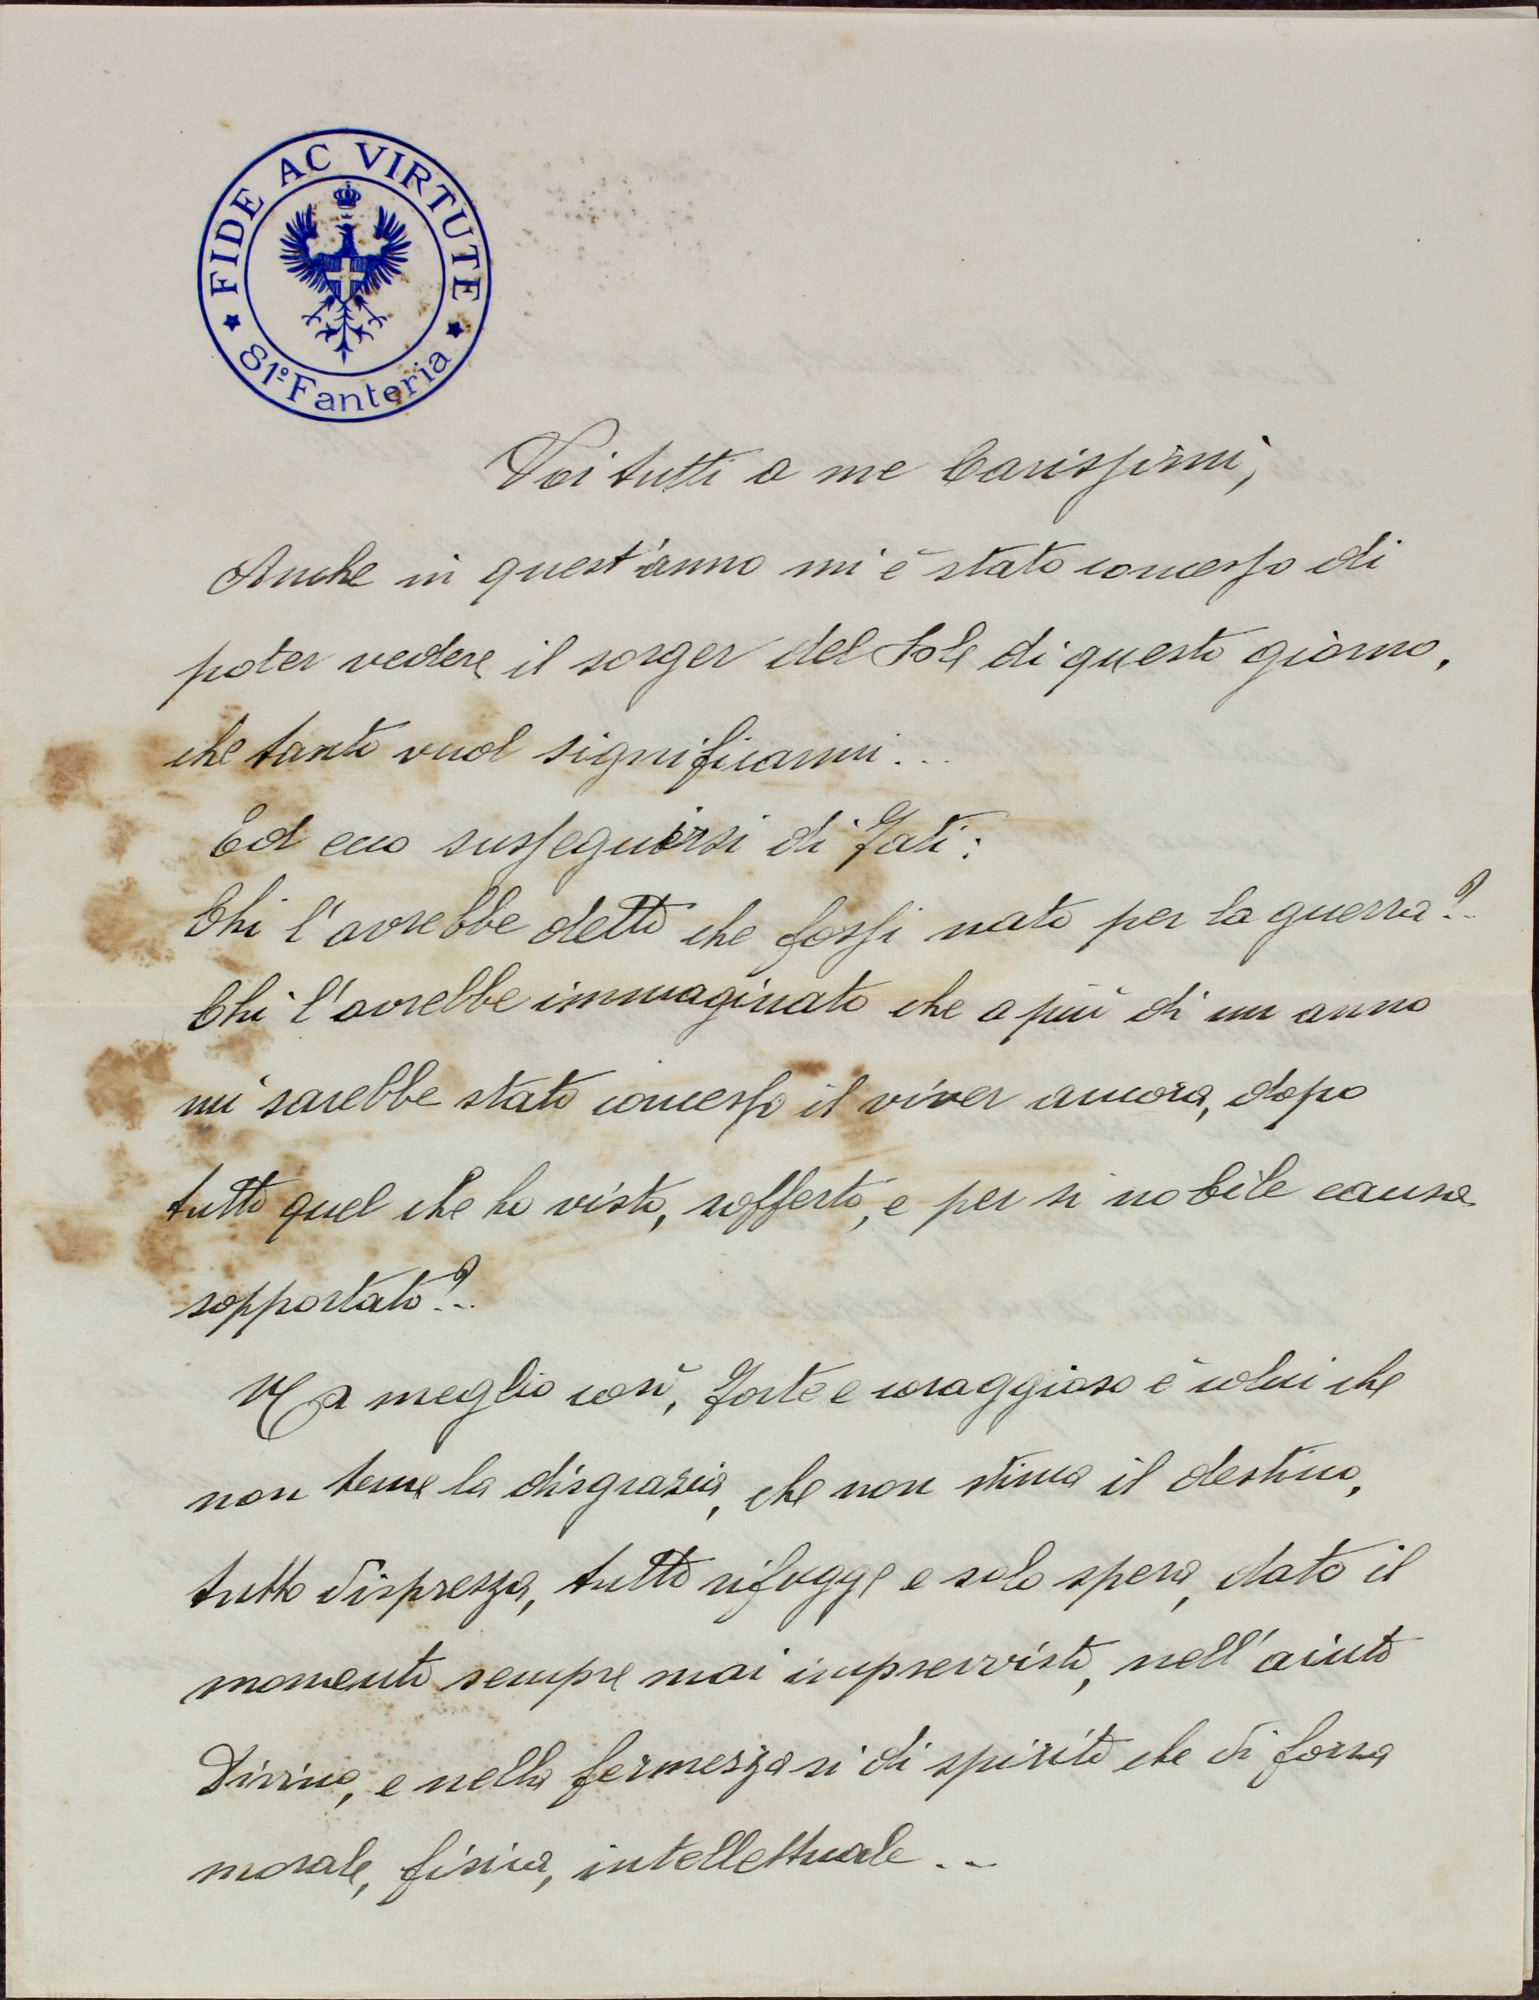 FIDE AC VIRTUTE
81º Fanteria
Voi tutti a me Carissimi,
Anche in quest'anno mi è stato concesso di
poter vedere il sorger del Sole di questo giorno,
che tanto vuol significarmi...
Ed ecco susseguirsi di Fati:
Chi l'avrebbe detto che fossi nato per la guerra?..
Chi l'avrebbe immaginato che a più di un anno
mi sarebbe stato concesso il viver ancora, dopo
tutto quel che ho visto, sofferto, e per sì nobile causa
sopportato?..
Ma meglio così, forte e coraggioso è colui che
non teme la disgrazia, che non stima il destino,
tutto disprezza, tutto rifugge e solo spera, dato il
momento sempre mai imprevvisto, nell'aiuto
Divino, e nella fermezza sì di spirito che di forza
morale, fisica, intellettuale...